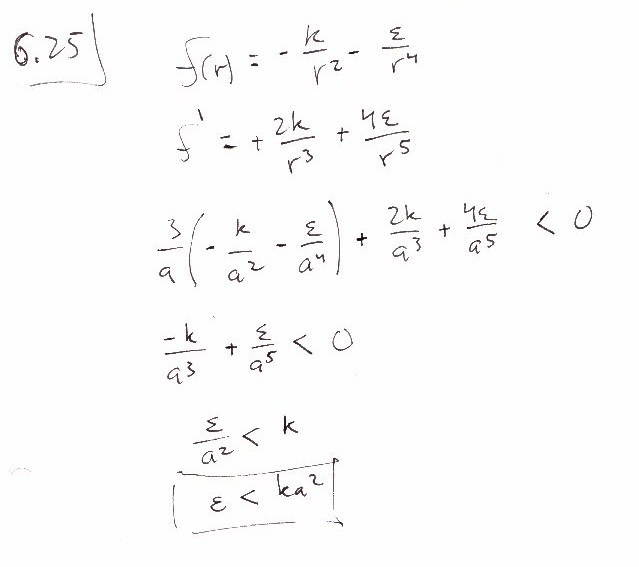 6.25
f(r) = - k/r² - ε/r⁴
f' = + 2k/r³ + 4ε/r⁵
3/a (- k/a² - ε/a⁴) + 2k/a³ + 4ε/a⁵ < 0
-k/a³ + ε/a⁵ < 0
ε/a² < k
ε < ka²